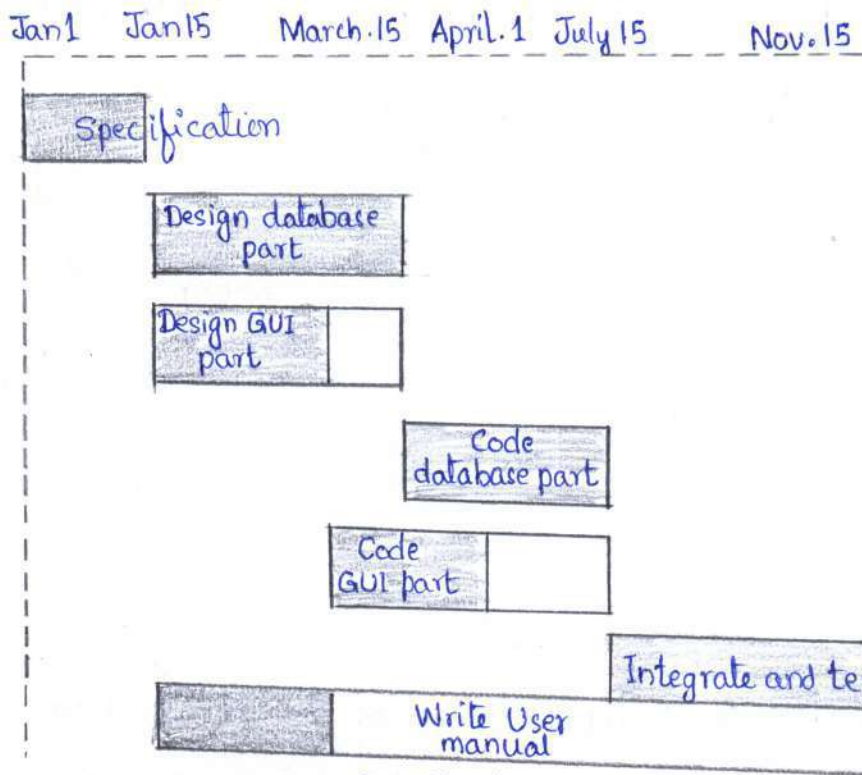 Jan 1 Jan 15 March.15 April.1 July 15 Nov.15
Specification
Design database
part
Design GUI
part
Code
database part
Code
GUI part
Integrate and te
Write User
manual